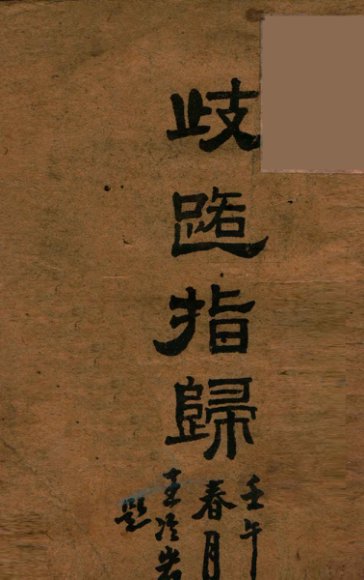 歧路指歸
壬午
春月
王冷岩
題